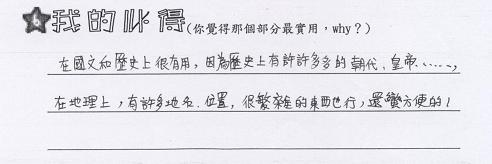 我的心得(你覺得那個部分最實用，why？)
在國文和歷史上很有用，因為歷史上有許許多多的朝代、皇帝……，
在地理上，有許多地名、位置，很繁雜的東西也行，還蠻方便的！